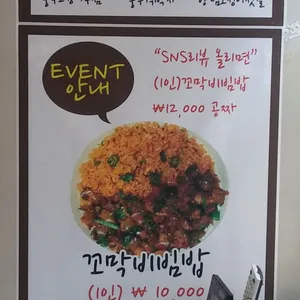 EVENT
안내
"SNS리뷰 올리면"
(1인)꼬막비빔밥
₩12,000 공짜
꼬막비빔밥
(1인) ₩ 10 000